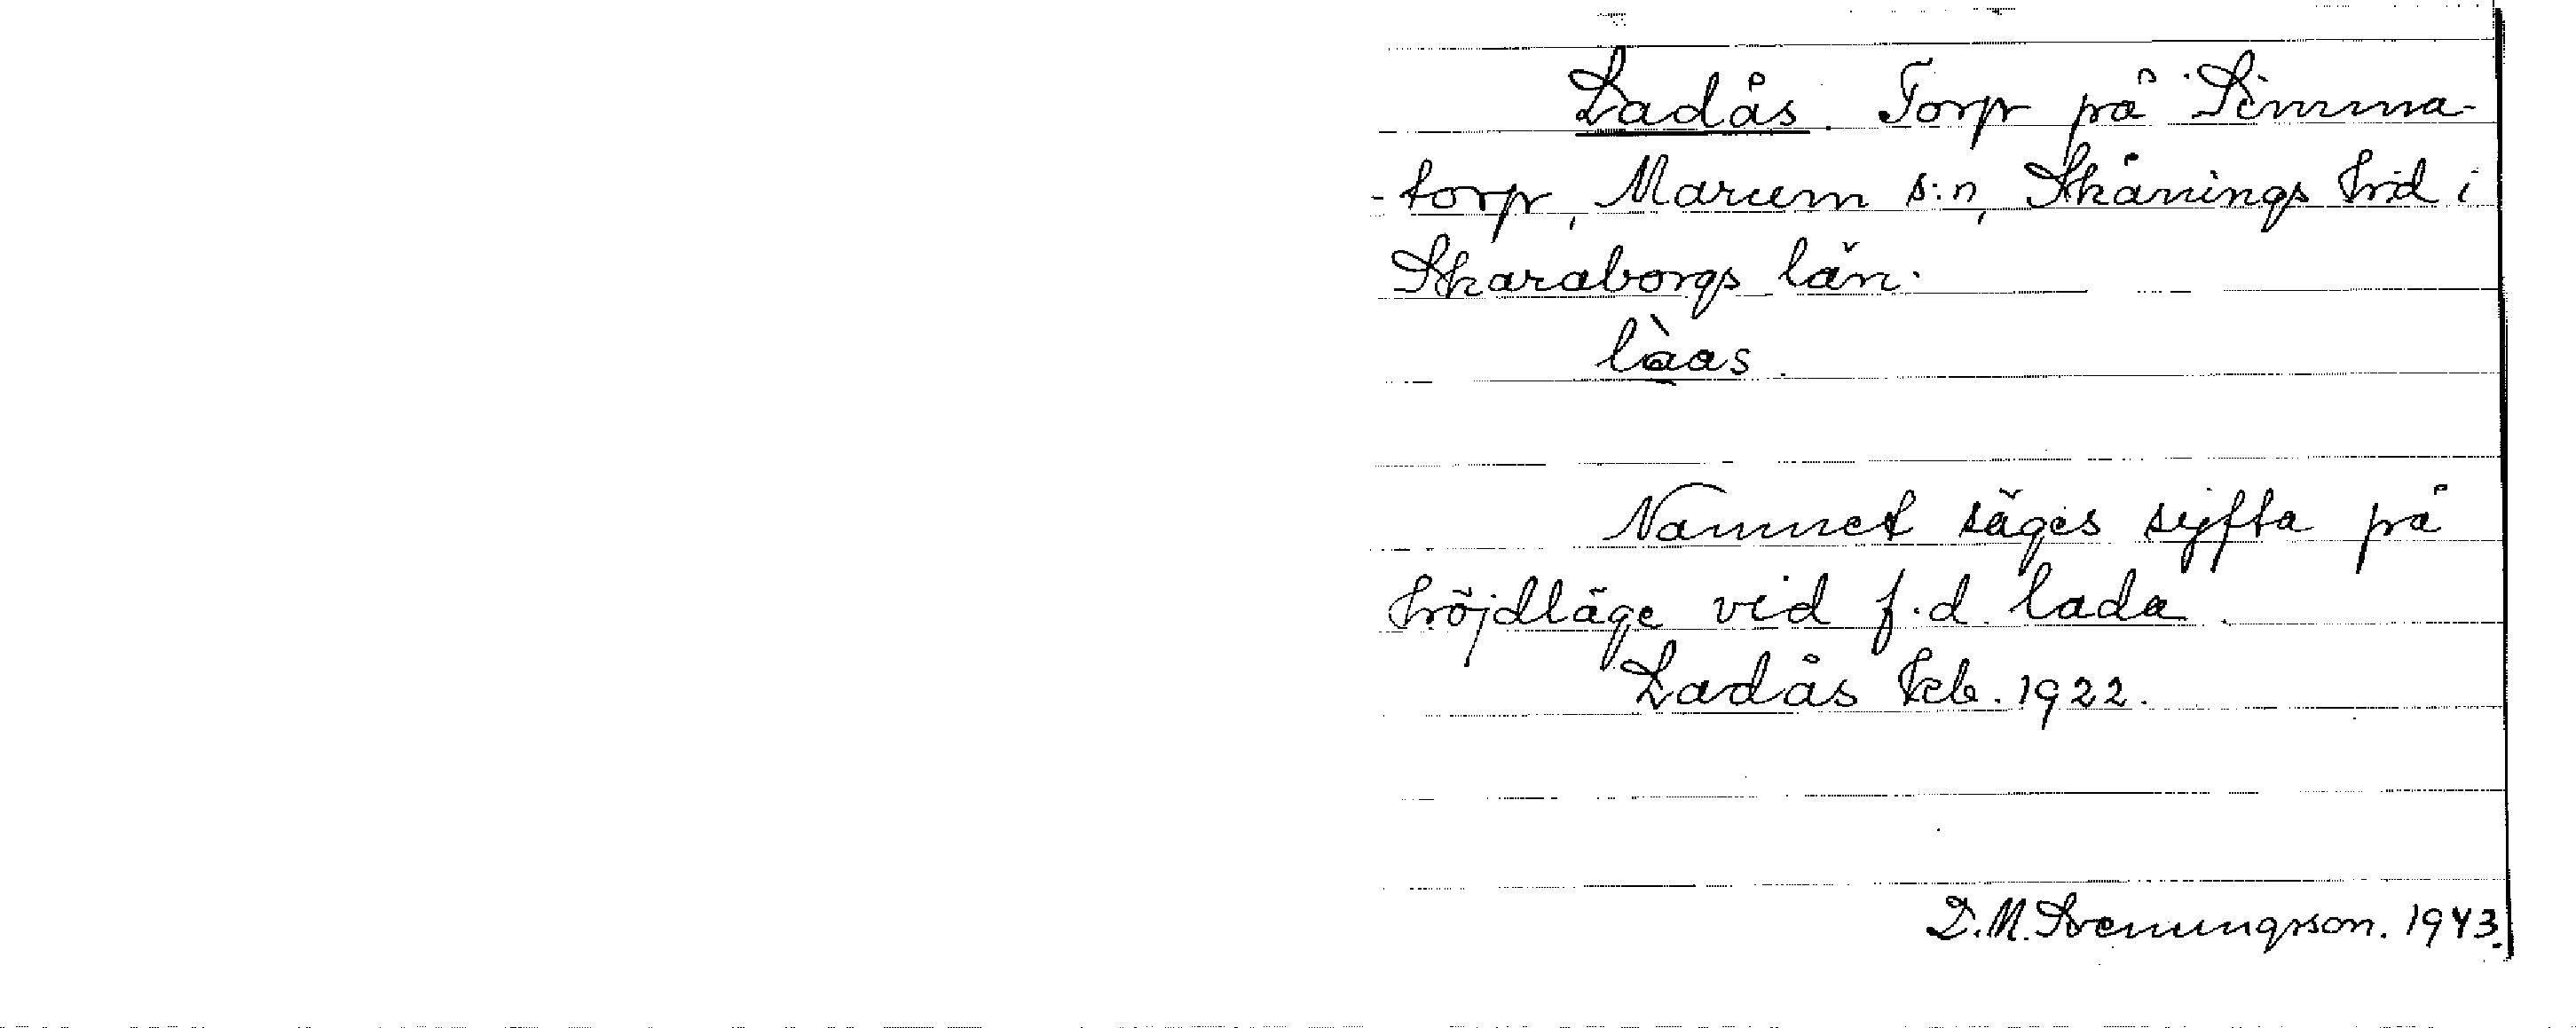 Ladås. Torp på Simma-
-torp, Marum s:n, Skånings hd i
Skaraborgs län.
làas.
Namnet säges syfta på
höjdläge vid f.d. lada.
Ladås kb. 1922.
D.M. Svenungsson. 1943.